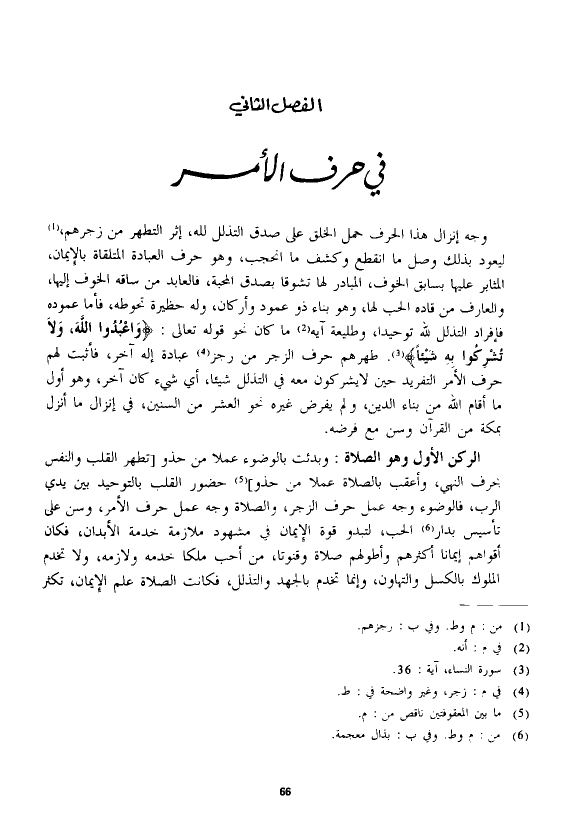 الفصل الثاني
في حرف الأمر
وجه إنزال هذا الحرف حمل الخلق على صدق التذلل لله، إثر التطهر من زجرهم،(1)
ليعود بذلك وصل ما انقطع وكشف ما انحجب، وهو حرف العبادة المتلقاة بالإيمان،
المثابر عليها بسابق الخوف، المبادر لها تشوقا بصدق المحبة، فالعابد من ساقه الخوف إليها،
والعارف من قاده الحب لها، وهو بناء ذو عمود وأركان، وله حظيرة تحوطه، فأما عموده
فإفراد التذلل لله توحيدا، وطليعة آيه(2) ما كان نحو قوله تعالى : ﴿وَاعْبُدُوا اللَّهَ، وَلاَ
تُشْرِكُوا بِهِ شَيْئاً﴾(3). طهرهم حرف الزجر من رجز(4) عبادة إله آخر، فأثبت لهم
حرف الأمر التفريد حين لايشركون معه في التذلل شيئا، أي شيء كان آخر، وهو أول
ما أقام الله من بناء الدين، ولم يفرض غيره نحو العشر من السنين، في إنزال ما أنزل
بمكة من القرآن وسن مع فرضه.
الركن الأول وهو الصلاة : وبدئت بالوضوء عملا من حذو [تطهر القلب والنفس
بحرف النهي، وأعقب بالصلاة عملا من حذو](5) حضور القلب بالتوحيد بين يدي
الرب، فالوضوء وجه عمل حرف الزجر، والصلاة وجه عمل حرف الأمر، وسن على
تأسيس بدار(6) الحب، لتبدو قوة الإيمان في مشهود ملازمة خدمة الأبدان، فكان
أقواهم إيمانا أكثرهم وأطولهم صلاة وقنوتا، من أحب ملكا خدمه ولازمه، ولا تخدم
الملوك بالكسل والتهاون، وإنما تخدم بالجهد والتذلل، فكانت الصلاة علم الإيمان، تكثر
(1) من : م وط. وفي ب : رجزهم.
(2) في م : أنه.
(3) سورة النساء، آية : 36.
(4) في م : زجر، وغير واضحة في : ط.
(5) ما بين المعقوفتين ناقص من : م.
(6) من : م وط. وفي ب : بذال معجمة.
66